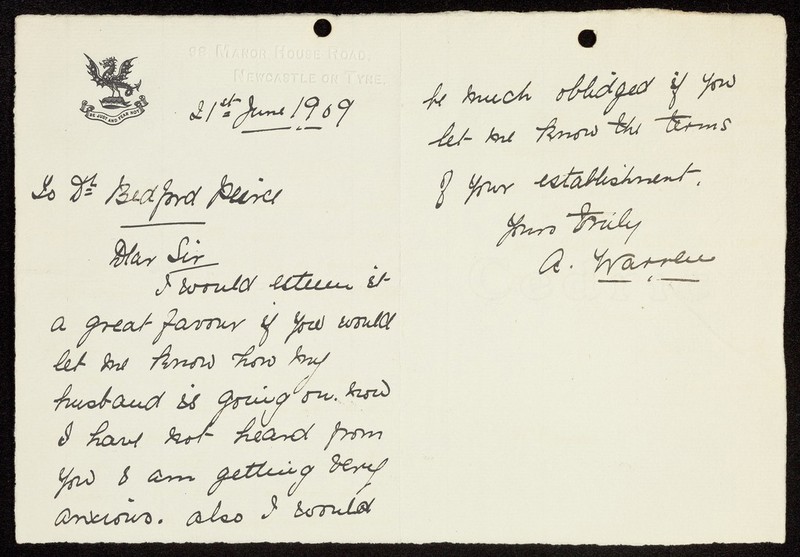 BE JUST AND FEAR NOT
96 MANOR HOUSE ROAD,
NEWCASTLE ON TYNE.
21st June 1909
To Dr Bedford Peirce
Dear Sir
I would esteem it
a great favour if you would
let me know how my
husband is going on. now
I have not heard from
you I am getting very
anxious. also I would
be much oblidged if you
let me know the terms
of your establishment.
Yours truly
A. Warren